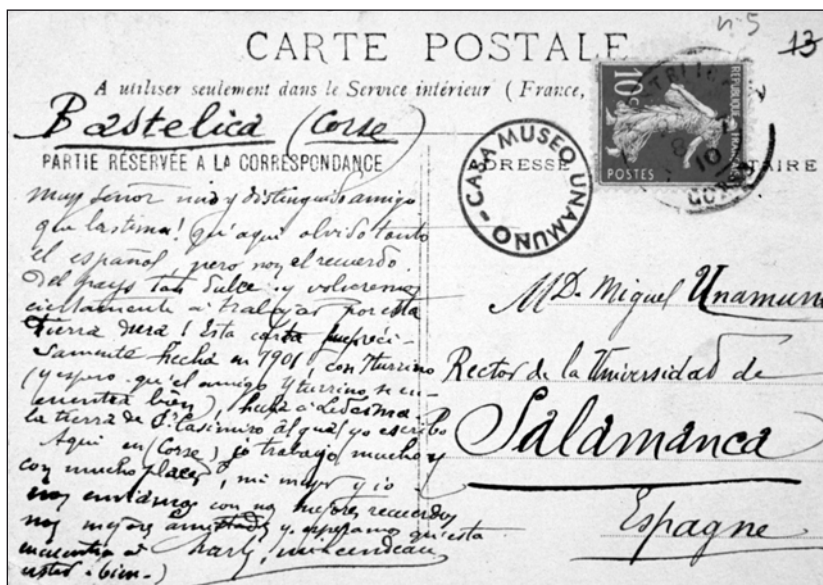 n. 5
13
CARTE POSTALE
A utiliser seulement dans le Service intérieur (France,
Bastelica (Corse)
PARTIE RÉSERVÉE A LA CORRESPONDANCE
ADRESSE
TAIRE
CASA MUSEO UNAMUNO
10c
REPUBLIQUE FRANÇAISE
POSTES
muy señor mio y distinguido amigo
que lastima! qu'aqui olvido tanto
el español, pero non el recuerdo
del pays tan dulce y volveremos
ciertamente a trabajar por esta
Tierra dura! Esta carta fue preci-
samente hecha en 1901, con Yturrino
(y espero qu'el amigo Yturrino se en-
cuentra bien), hacia a Ledesma.
la tierra de Casimiro al qual yo escribo
Aqui en (Corse) io trabajo mucho y
con mucho placer, mi mujer y io
nos enviamos con nos mejores recuerdos
nos mejores amistades y esperamos qu'esta
encuentra a
usted bien.)
Charly milcendeau
MD. Miguel Unamun
Rector de la Universidad de
Salamanca
Espagne